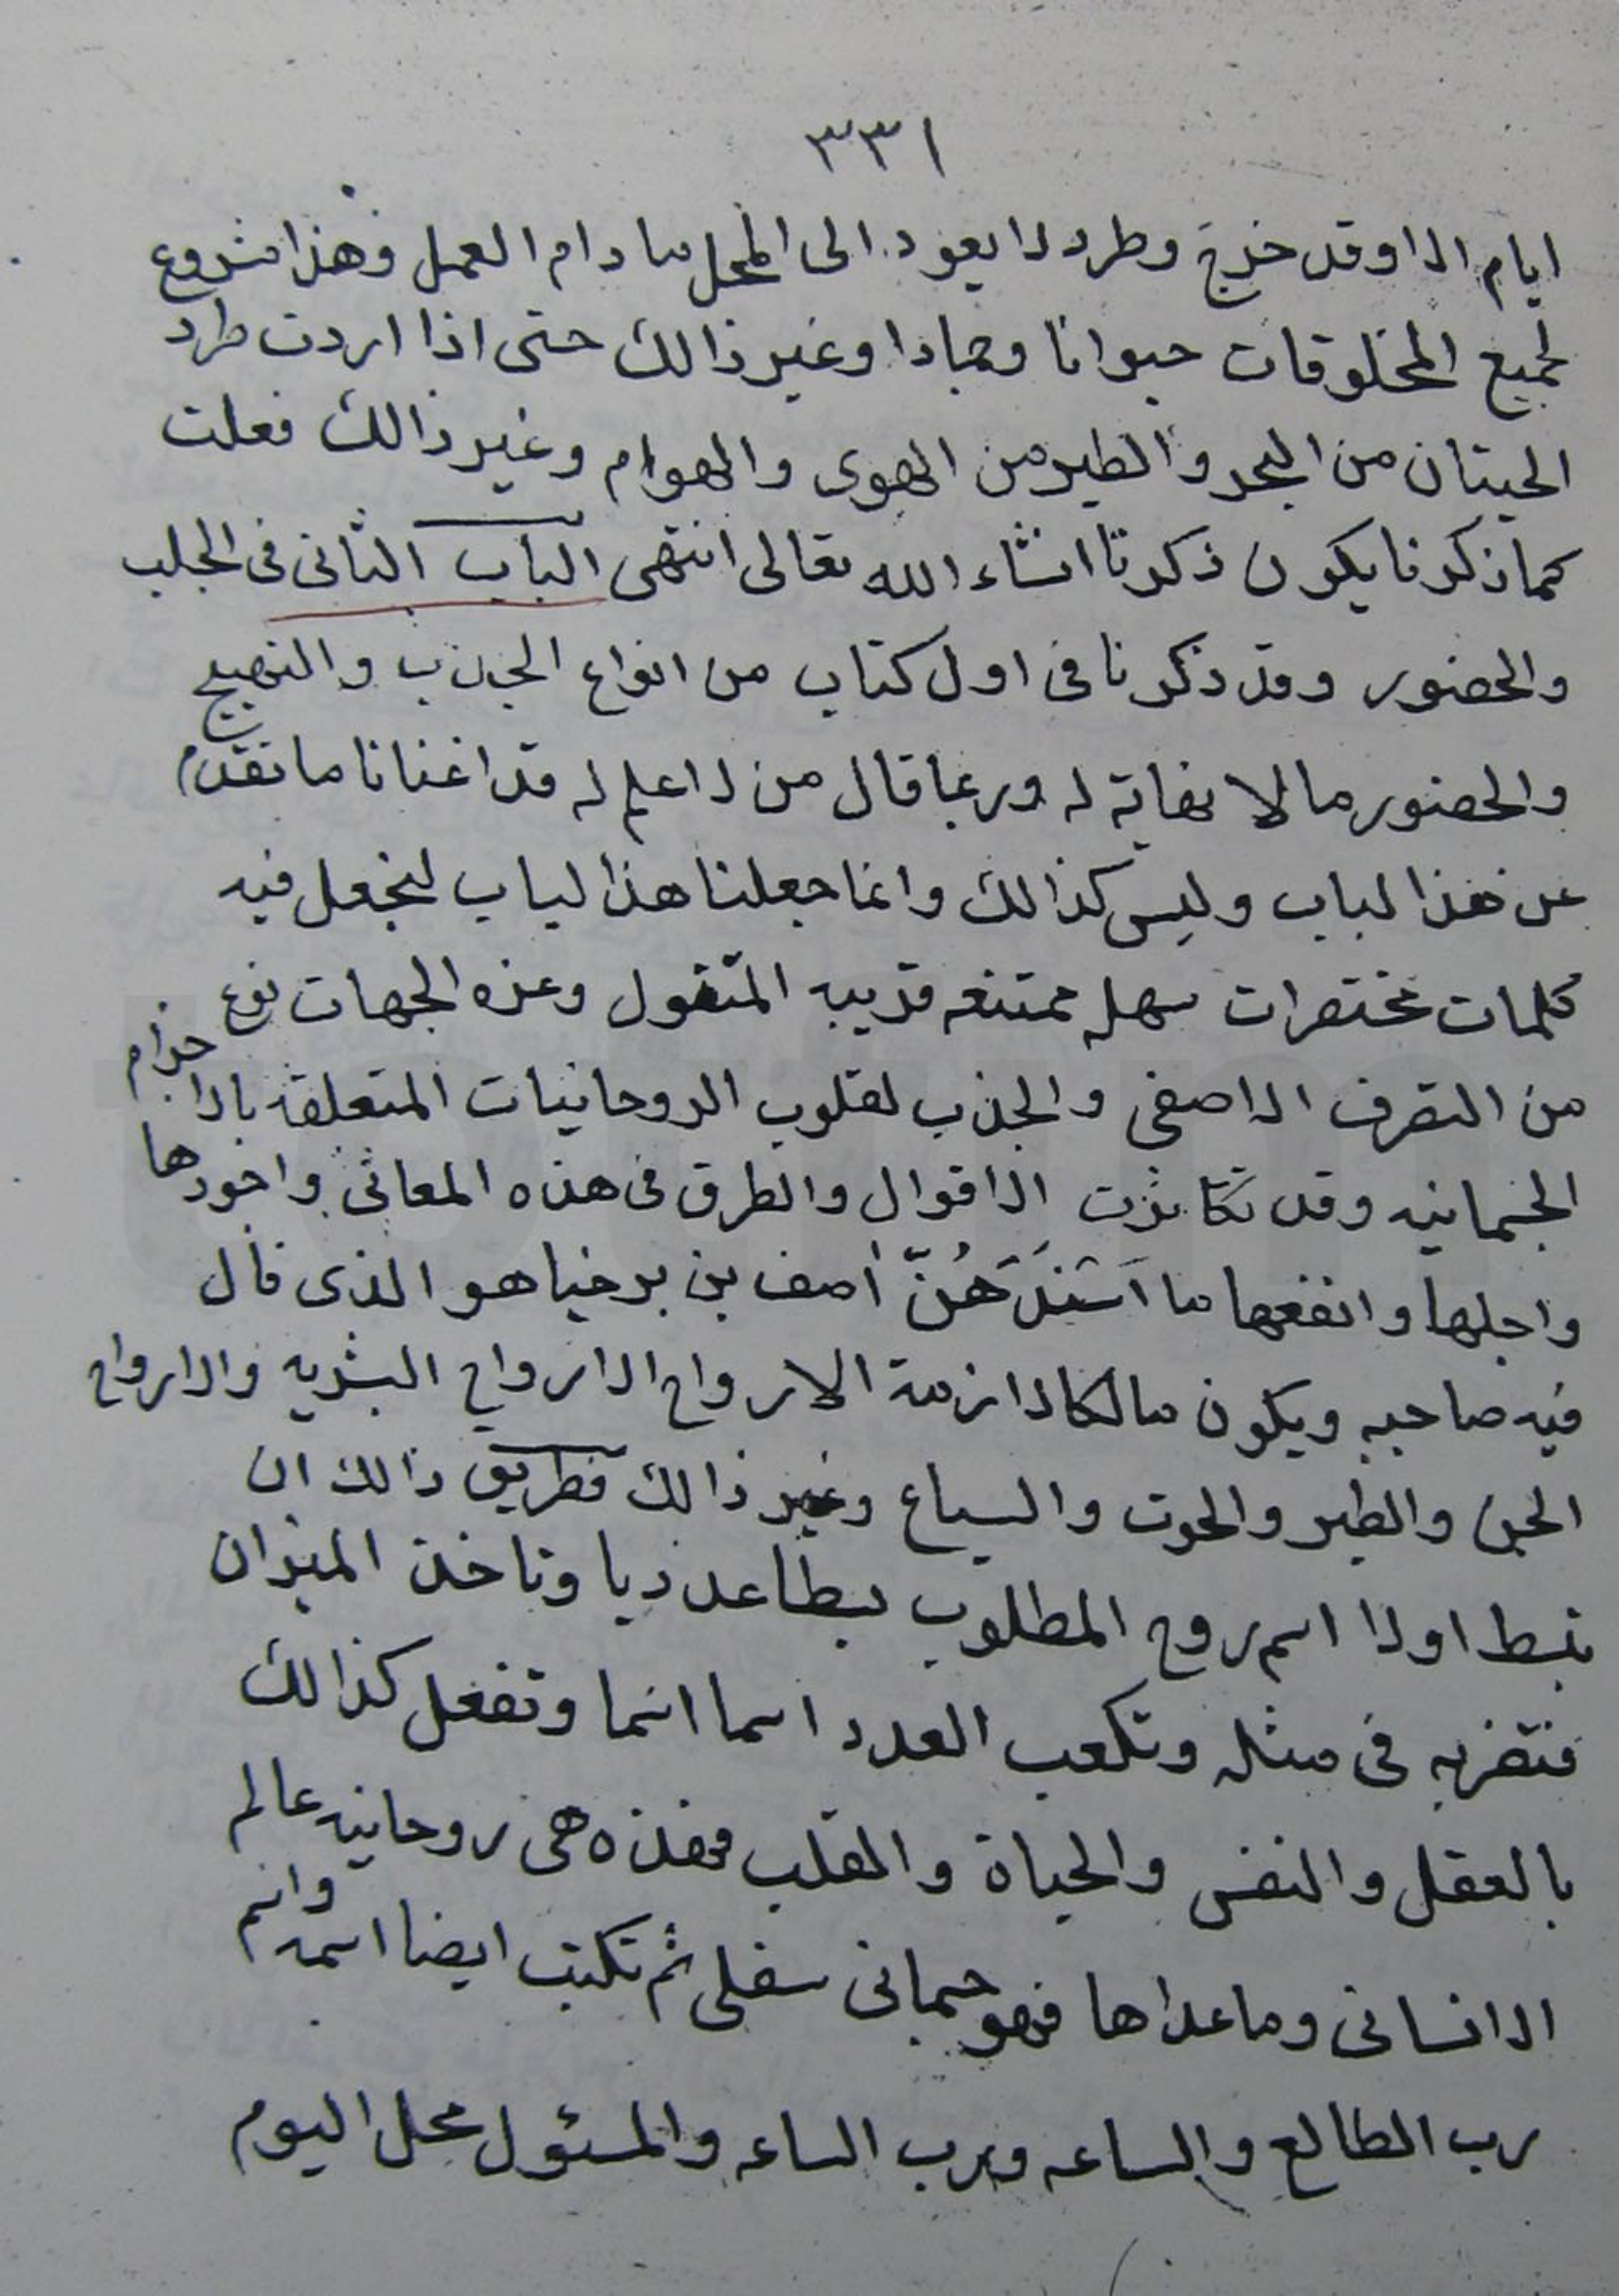 ٣٣١
ايام الا وقد خرج وطرد لا يعود الى المحل ما دام العمل وهذا مشروع
لجميع المخلوقات حيوانا وجمادا وغير ذالك حتى اذا اردت طرد
الحيتان من البحر والطير من الهوى والهوام وغير ذالك فعلت
كما ذكرنا يكون ذكرنا انشاء الله تعالى انتهى الباب الثانى فى الجلب
والحضور وقد ذكرنا فى اول كتاب من انواع الجذب والتهييج
والحضور ما لا نهاية له وربما قال من لا علم له قد اغنانا ما تقدم
عن هذا لباب وليس كذالك وانما جعلنا هذا لباب لنجعل فيه
كلمات مختصرات سهله ممتنعه قريبه وهذه الجهات نوع
من التصرف الاصفى والجذب لقلوب الروحانيات المتعلقه بالاجرام
الجسمانيه وقد تكاثرت الاقوال والطرق فى هذه المعانى واجودها
واجلها وانفعها ما اصف بن برخيا هو الذى قال
فيه صاحبه ويكون مالكا لازمة الارواح الارواح البشريه والارواح
الجن والطير والحوت والسباع وغير ذالك فطريق ذالك ان
تبسط اولا اسم روح المطلوب بسطا عدديا وتاخذ الميزان
فتضربه فى مثله وتكعب العدد اسما اسما وتفعل كذالك
بالعقل والنفس والحياة والقلب فهذه هى روحانيه عالم
الانسانى وما عداها فهو جسمانى سفلى ثم تكتب ايضا اسمه واسم
رب الطالع والساعه ورب الساعه والمسئول محل اليوم